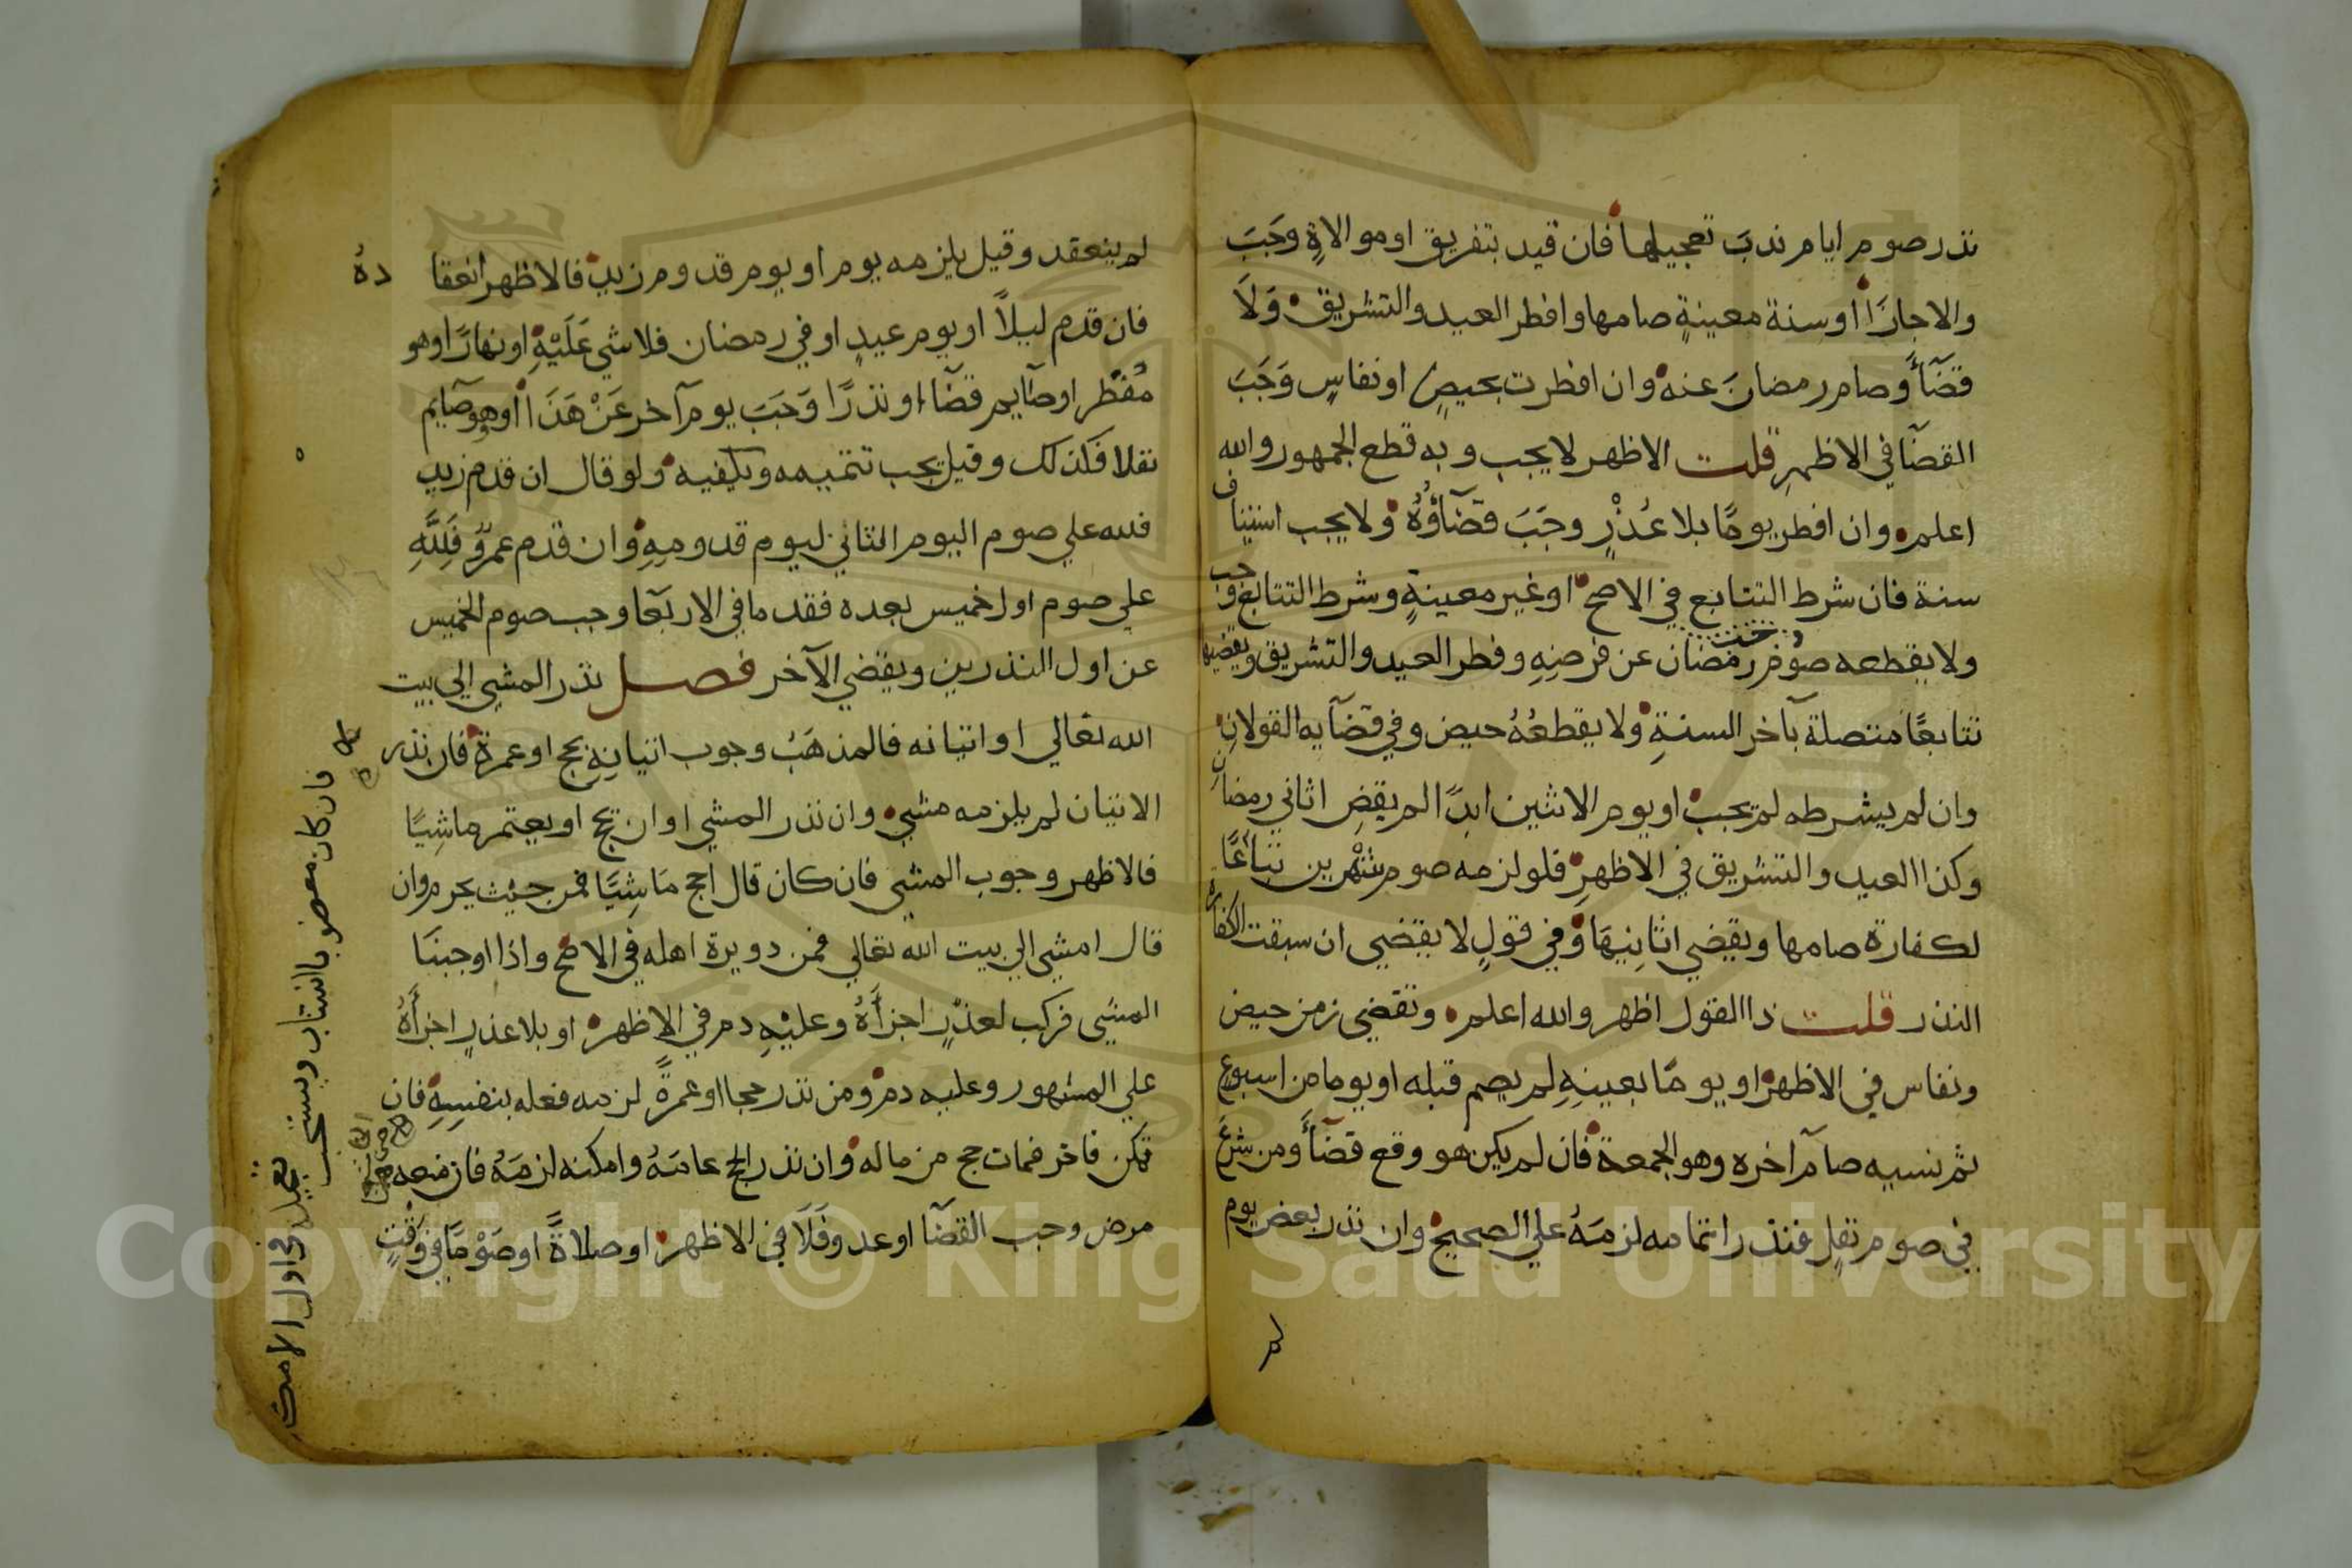 نذر صوم ايام ندبَ تعجيلها فان قيد بتفريق او موالاةٍ وجَبَ
والا جازَا او سنة معينةٍ صامها وافطر العيد والتشريق وَلَا
قضَآءً وصام رمضانَ عنه وان افطرت بحيضٍ او نفاسٍ وَجَبَ
القضَآ في الاظهرِ قلت الاظهر لا يجب وبه قطع الجمهور والله
اعلم وان افطر يومًا بلا عُذْرٍ وجَبَ قضَآؤُهُ ولا يجب استيناف
سنة فان شرط التتابع في الاصح او غير معينةٍ وشرط التتابع وجب
ولا يقطعه صوم رمضان عن فرضِهِ وفطر العيد والتشريق ويقضيها
تتابعًا متصلة بآخر السنةِ ولا يقطعُهُ حيض وفي قضَآيه القولانِ
وان لم يشرطه لم يجب او يوم الاثنين ابدًا لم يقضِ اثاني رمضان
وكذا العيد والتشريق في الاظهرِ فلو لزمه صوم شَهْرين تباعًا
لكفارة صامها ويقضي اثانِيهَا وفي قولٍ لا يقضي ان سبقت الكفارة
النذر قلت ذا القول اظهر والله اعلم وتقضي زمن حيض
ونفاس في الاظهر او يومًا بعينِهِ لم يصم قبله او يوما من اسبوع
ثم نسيه صام آخره وهو الجمعة فان لم يكن هو وقع قضَآءً ومن شرعَ
في صوم نفلٍ فنذر اتمامه لزمَهُ علي الصحيح وان نذر بعض يوم
لم ينعقد وقيل يلزمه يوم او يوم قدوم زيد فالاظهر انعقا دهُ
فان قدم ليلاً او يوم عيدٍ او في رمضان فلا شي عَلَيْهِ او نهارًا وهو
مُفْطر او صَآيم قضَآء او نذرًا وَجَبَ يوم آخر عَنْ هَذَا او وهو صَآيم
نفلا فكذلك وقيل يجب تتميمه ويكفيه ولو قال ان قدم زيد
فلله علي صوم اليوم الثاني ليوم قدومِهِ وان قدم عمرٌو فَلِلَّهِ
علي صوم اول خميس بعده فقدما في الاربَعا وجب صوم الخميس
عن اول النذرين ويقضي الآخر فصل نذر المشي الي بيت
الله تعالي او اتيانه فالمذهَبُ وجوب اتيانِهِ بحج او عمرة فان نذر
الاتيان لم يلزمه مشي وان نذر المشي او ان يحج او يعتمر ماشِيًا
فالاظهر وجوب المشي فان كان قال احج مَاشِيًا فمن حيْث يحرم وان
قال امشي الي بيت الله تعالي فمن دويرة اهله في الاصح واذا اوجبنَا
المشي فركب لعذرٍ اجزأَهُ وعليْهِ دم في الاظهر او بلا عذرٍ اجزأَهُ
علي المشهور وعليه دم ومن نذر حجا او عمرةً لزمه فعله بنفسِهِ فان
تمكن فاخر فمات حج من ماله وان نذر الحج عامَهُ وامكنه لزمَهُ فان منعه
مرض وجب القضَآ او عدو فَلَا في الاظهر او صلاةً او صَوْمًا في وَقْتٍ
فان كان معضوبا استناب ويستحب
تعجيل في اول الامكان